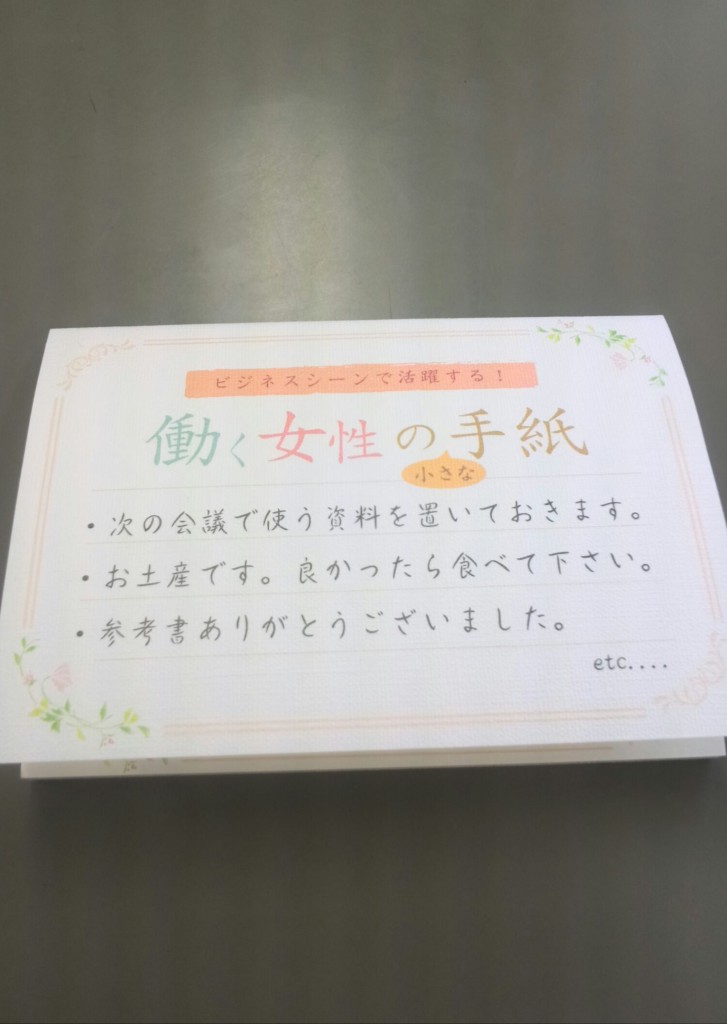 ビジネスシーンで活躍する！
働く女性の小さな手紙
・次の会議で使う資料を置いておきます。
・お土産です。良かったら食べて下さい。
・参考書ありがとうございました。
etc....